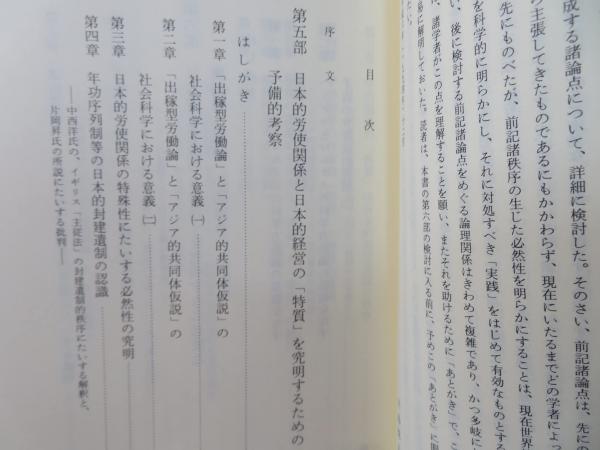 成する諸論点について、詳細に検討した。そのさい、前記諸論点は、先にの
の主張してきたものであるにもかかわらず、現在にいたるまでどの学者によっ
先にものべたが、前記諸秩序の生じた必然性を明らかにすることは、現在世界
を科学的に明らかにし、それに対処すべき「実践」をはじめて有効なものとする
い、後に検討する前記諸論点をめぐる論理関係はきわめて複雑であり、かつ多岐に
、諸学者がこの点を理解することを願い、またそれを助けるために「あとがき」で、こ
易に解明しておいた。読者は、本書の第六部の検討に入る前に、予めこの「あとがき」に
たい。
目次
序文
第五部 日本的労使関係と日本的経営の「特質」を究明するための
予備的考察
はしがき
第一章 「出稼型労働論」と「アジア的共同体仮説」の
社会科学における意義㈠
第二章 「出稼型労働論」と「アジア的共同体仮説」の
社会科学における意義㈡
第三章 日本的労使関係の特殊性にたいする必然性の究明
第四章 年功序列制等の日本的封建遺制の認識
――中西洋氏の、イギリス「主従法」の封建遺制的秩序にたいする解釈と、
片岡昇氏の所説にたいする批判――